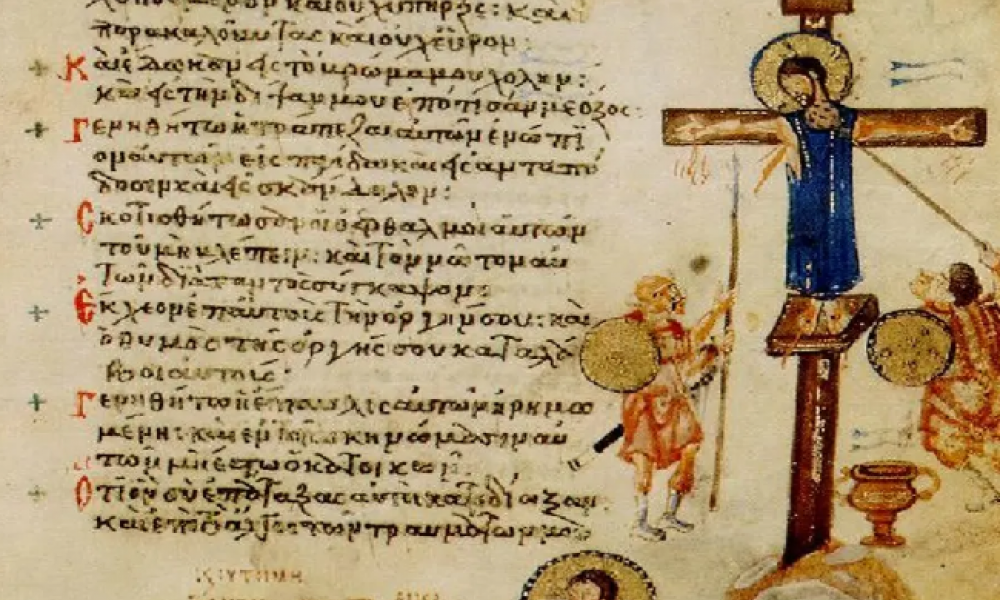 καὶ οὐχ ὑπῆρξε: καὶ
παρακαλοῦντας καὶ οὐχ εὗρον:
Καὶ ἔδωκαν εἰς τὸ βρῶμά μου χολήν:
καὶ εἰς τὴν δίψαν μου ἐπότισάν με ὄξος:
Γενηθήτω ἡ τράπεζα αὐτῶν ἐνώπι
ον αὐτῶν εἰς παγίδα καὶ εἰς ἀνταπό
δοσιν καὶ εἰς σκάνδαλον:
Σκοτισθήτωσαν οἱ ὀφθαλμοὶ αὐτῶν
τοῦ μὴ βλέπειν: καὶ τὸν νῶτον αὐ
τῶν διὰ παντὸς σύγκαμψον:
Ἔκχεον ἐπ' αὐτοὺς τὴν ὀργήν σου: καὶ
ὁ θυμὸς τῆς ὀργῆς σου καταλά
βοι αὐτούς:
Γενηθήτω ἡ ἔπαυλις αὐτῶν ἠρημω
μένη: καὶ ἐν τοῖς σκηνώμασιν αὐ
τῶν μὴ ἔστω ὁ κατοικῶν:
Ὅτι ὃν σὺ ἐπάταξας αὐτοὶ κατεδίωξαν
καὶ ἐπὶ τὸ ἄλγος τῶν τραυμάτων μου